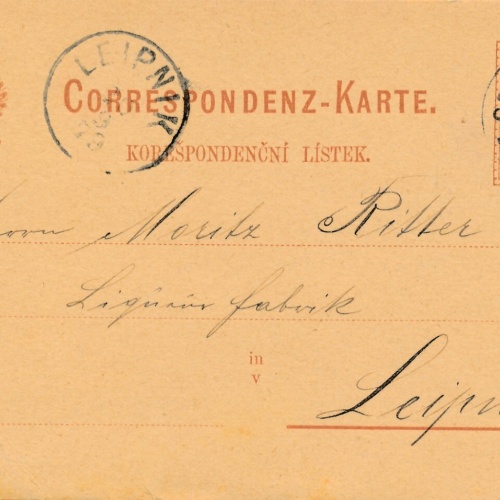 LEIPNIK
CORRESPONDENZ-KARTE.
KOREŠPONDENČNÍ LÍSTEK.
Moritz Ritter
Liqueur fabrik
in
v
Leipn